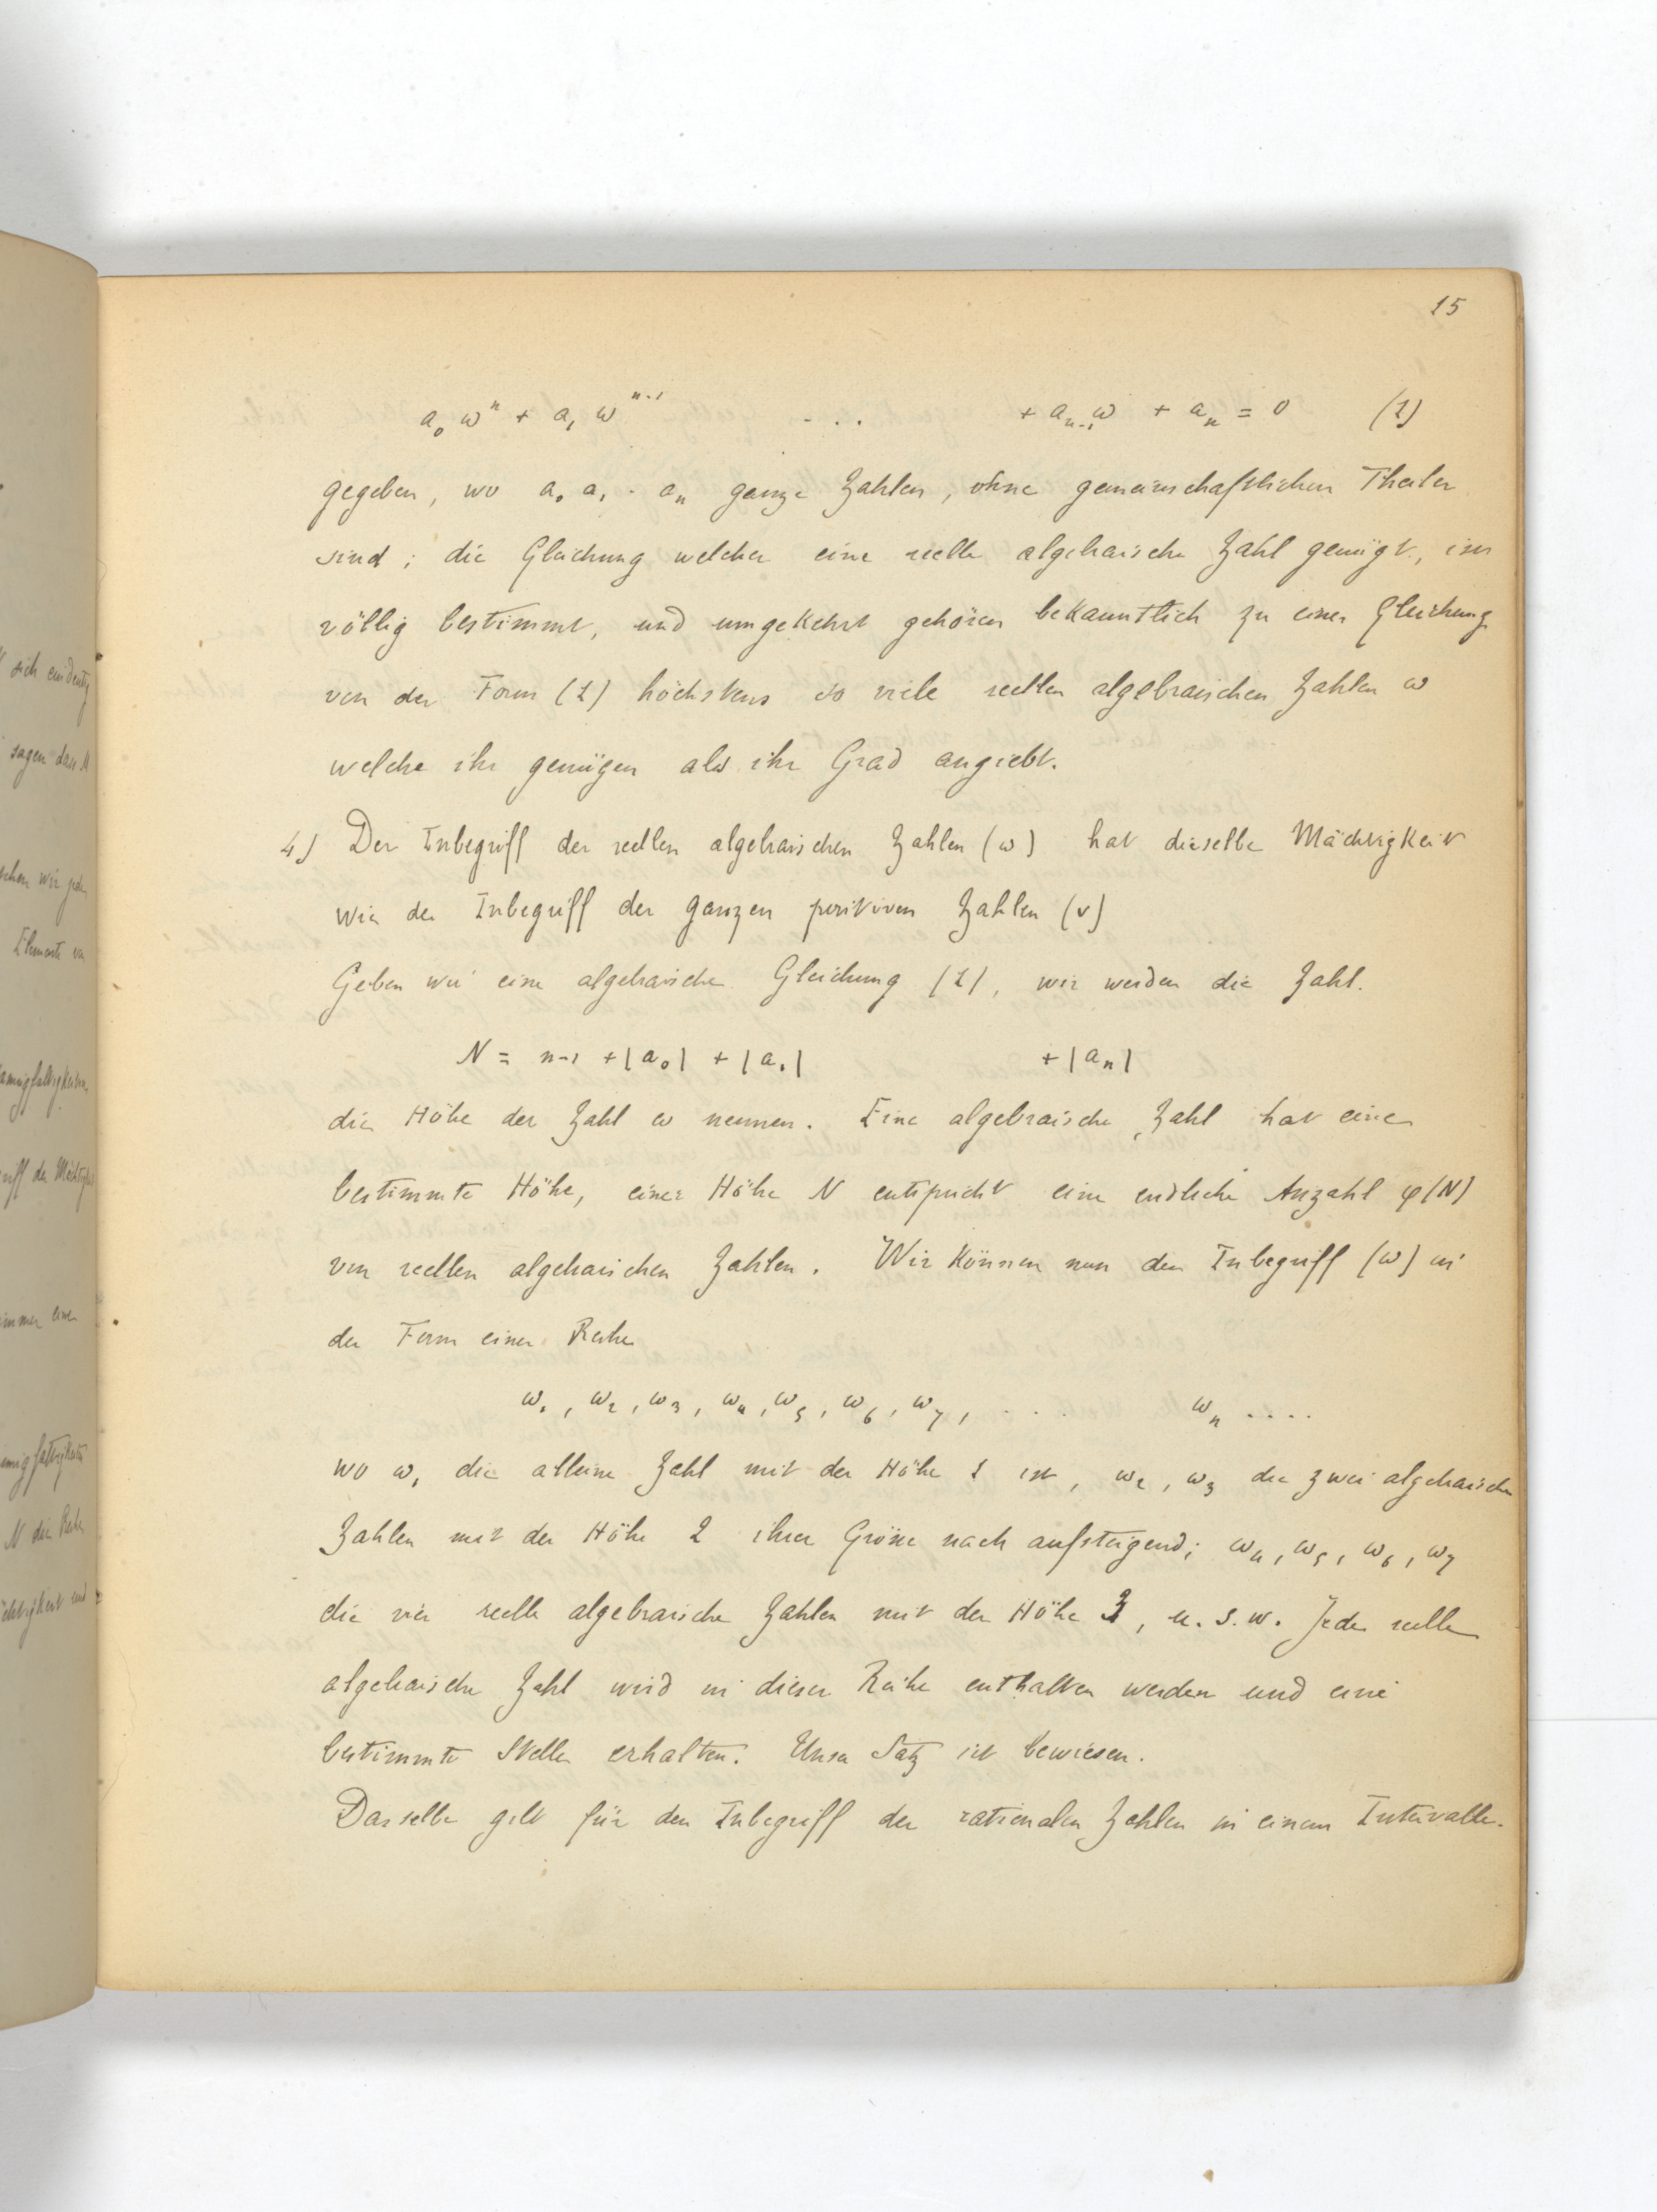 15
a₀ ωⁿ + a₁ ωⁿ⁻¹ . . . + aₙ₋₁ω + aₙ = 0 (1)
gegeben, wo a₀ a₁ . aₙ ganze Zahlen, ohne gemeinschaftlichen Theiler
sind ; die Gleichung welcher eine reelle algebraische Zahl genügt, ist
völlig bestimmt, und umgekehrt gehören bekanntlich zu einer Gleichung
von der Form (1) höchstens so viele reellen algebraischen Zahlen ω
welche ihr genügen als ihr Grad angiebt.
4) Der Inbegriff der reellen algebraischen Zahlen (ω) hat dieselbe Mächtigkeit
wie der Inbegriff der ganzen positiven Zahlen (ν)
Geben wir eine algebraische Gleichung (1), wir werden die Zahl.
N = n-1 + |a₀| + |a₁| + |aₙ|
die Höhe der Zahl ω nennen. Eine algebraische Zahl hat eine
bestimmte Höhe, einer Höhe N entspricht eine endliche Anzahl φ(N)
von reellen algebraischen Zahlen. Wir können nun den Inbegriff (ω) in
der Form einer Reihe
ω₁, ω₂, ω₃, ω₄, ω₅, ω₆, ω₇, . . . ωₙ ....
wo ω₁ die alleine Zahl mit der Höhe 1 ist, ω₂, ω₃ die zwei algebraischen
Zahlen mit der Höhe 2 ihrer Grösse nach aufsteigend; ω₄, ω₅, ω₆, ω₇
die vier reelle algebraische Zahlen mit der Höhe 3, u. s. w. Jede reelle
algebraische Zahl wird in dieser Reihe enthalten werden und eine
bestimmte Stelle erhalten. Unser Satz ist bewiesen.
Dasselbe gilt für den Inbegriff der rationalen Zahlen in einem Intervalle.
sich eindeutig
sagen dass M
wir jedes
Elemente von
der Mächtigkeit
immer einen
N die Reihe
und